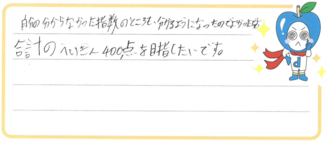 自分の分からなかった指数のところも分かるようになったのでよかったです
合計のへいきん400点を目指したいです。
d